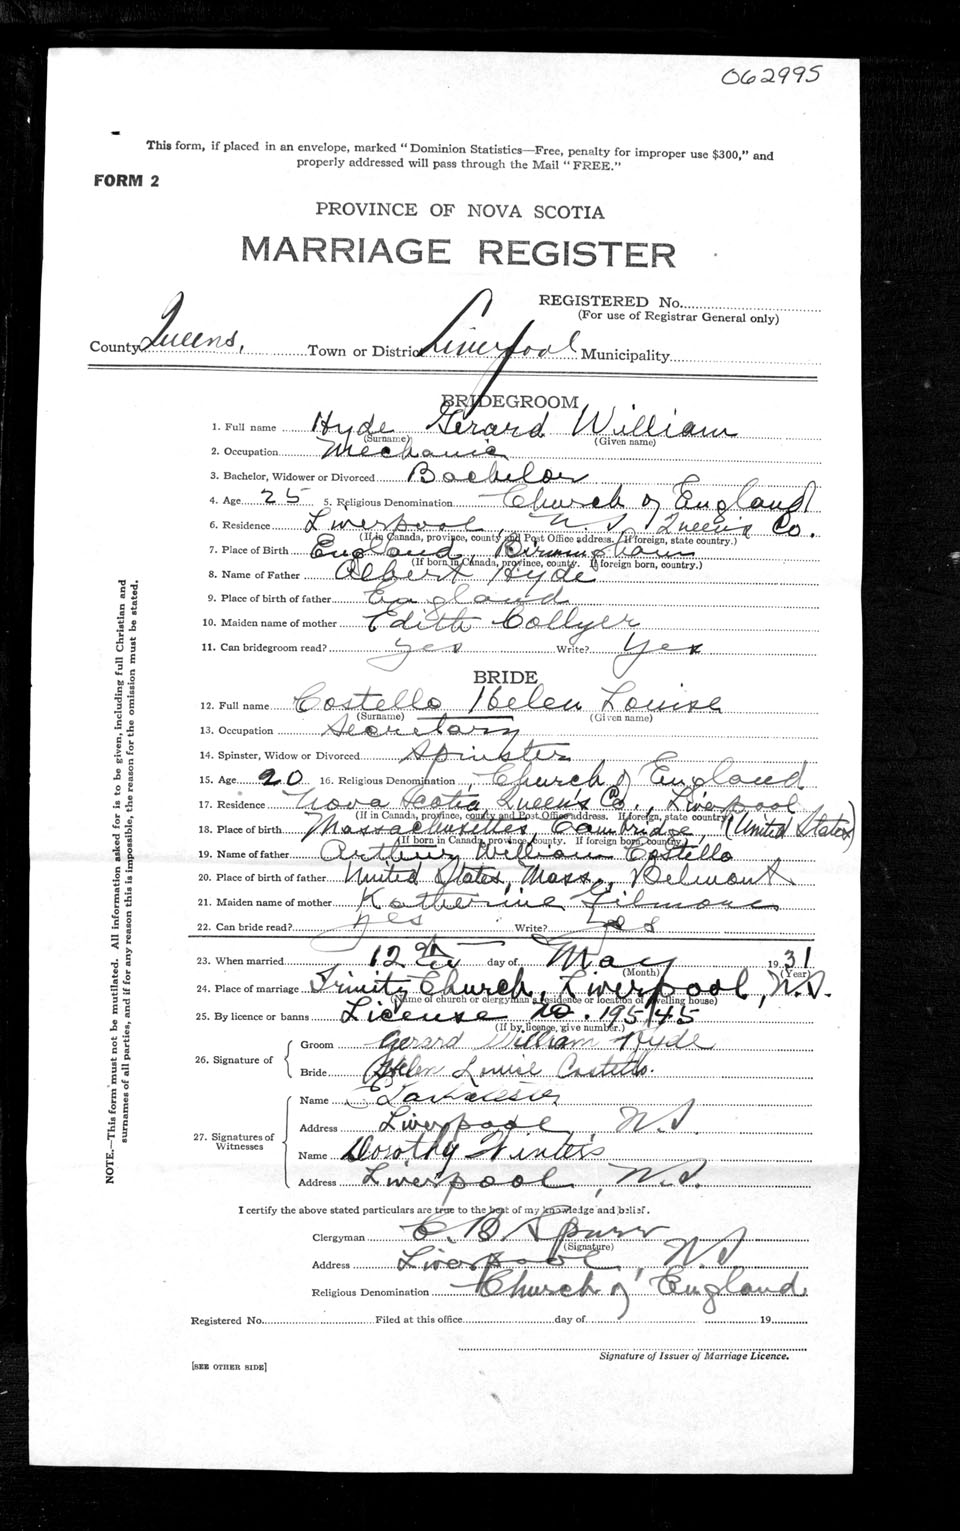 062995
This form, if placed in an envelope, marked "Dominion Statistics—Free, penalty for improper use $300," and
properly addressed will pass through the Mail "FREE."
FORM 2
PROVINCE OF NOVA SCOTIA
MARRIAGE REGISTER
REGISTERED No.
(For use of Registrar General only)
County Queens, Town or District Liverpool Municipality
BRIDEGROOM
1. Full name Hyde Gerard William
(Surname) (Given name)
2. Occupation Mechanic
3. Bachelor, Widower or Divorced Bachelor
4. Age 25 5. Religious Denomination Church of England
6. Residence Liverpool, N.S. Queen's Co.
(If in Canada, province, county and Post Office address. If foreign, state country.)
7. Place of Birth England, Birmingham
(If born in Canada, province, county. If foreign born, country.)
8. Name of Father Albert Hyde
9. Place of birth of father England
10. Maiden name of mother Edith Collyer
11. Can bridegroom read? yes Write? Yes
BRIDE
12. Full name Costello Helen Louise
(Surname) (Given name)
13. Occupation Secretary
14. Spinster, Widow or Divorced Spinster
15. Age 20 16. Religious Denomination Church of England
17. Residence Nova Scotia, Queen's Co., Liverpool
(If in Canada, province, county and Post Office address. If foreign, state country)
18. Place of birth Massachusettes, Cambridge, (United States)
(If born in Canada, province, county. If foreign born, country.)
19. Name of father Arthur William Costello
20. Place of birth of father United States, Mass., Belmont
21. Maiden name of mother Katherine Gilmore
22. Can bride read? yes Write? yes
23. When married 12 day of May 1931
(Month) (Year)
24. Place of marriage Trinity Church, Liverpool, N.S.
(Name of church or clergyman's residence or location of dwelling house)
25. By licence or banns License No. 195145
(If by licence, give number.)
26. Signature of
Groom Gerard William Hyde
Bride Helen Louise Costello.
27. Signatures of Witnesses
Name
Address Liverpool, N.S.
Name Dorothy Winters
Address Liverpool, N.S.
I certify the above stated particulars are true to the best of my knowledge and belief.
Clergyman C. B. Spurr
(Signature)
Address Liverpool, N.S
Religious Denomination Church of England
Registered No. Filed at this office day of 19
Signature of Issuer of Marriage Licence.
[SEE OTHER SIDE]
NOTE.—This form must not be mutilated. All information asked for is to be given, including full Christian and
surnames of all parties, and if for any reason this is impossible, the reason for the omission must be stated.